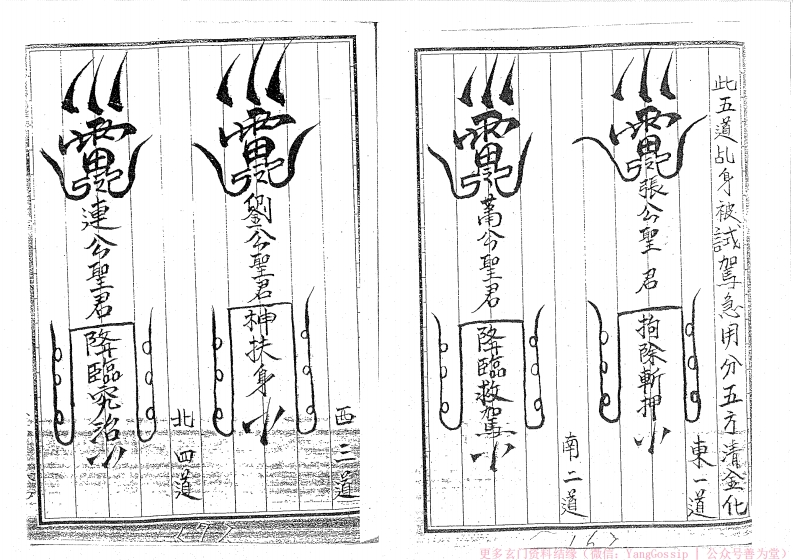 此五道乩身被試駕急用分五方清金化
張公聖君
拘除斬押
東一道
蕭公聖君
降臨救駕
南二道
劉公聖君
神扶身
西三道
連公聖君
降臨究治
北四道
<6>
<7>
更多玄门资料结缘(微信:YangGossip | 公众号善为堂)